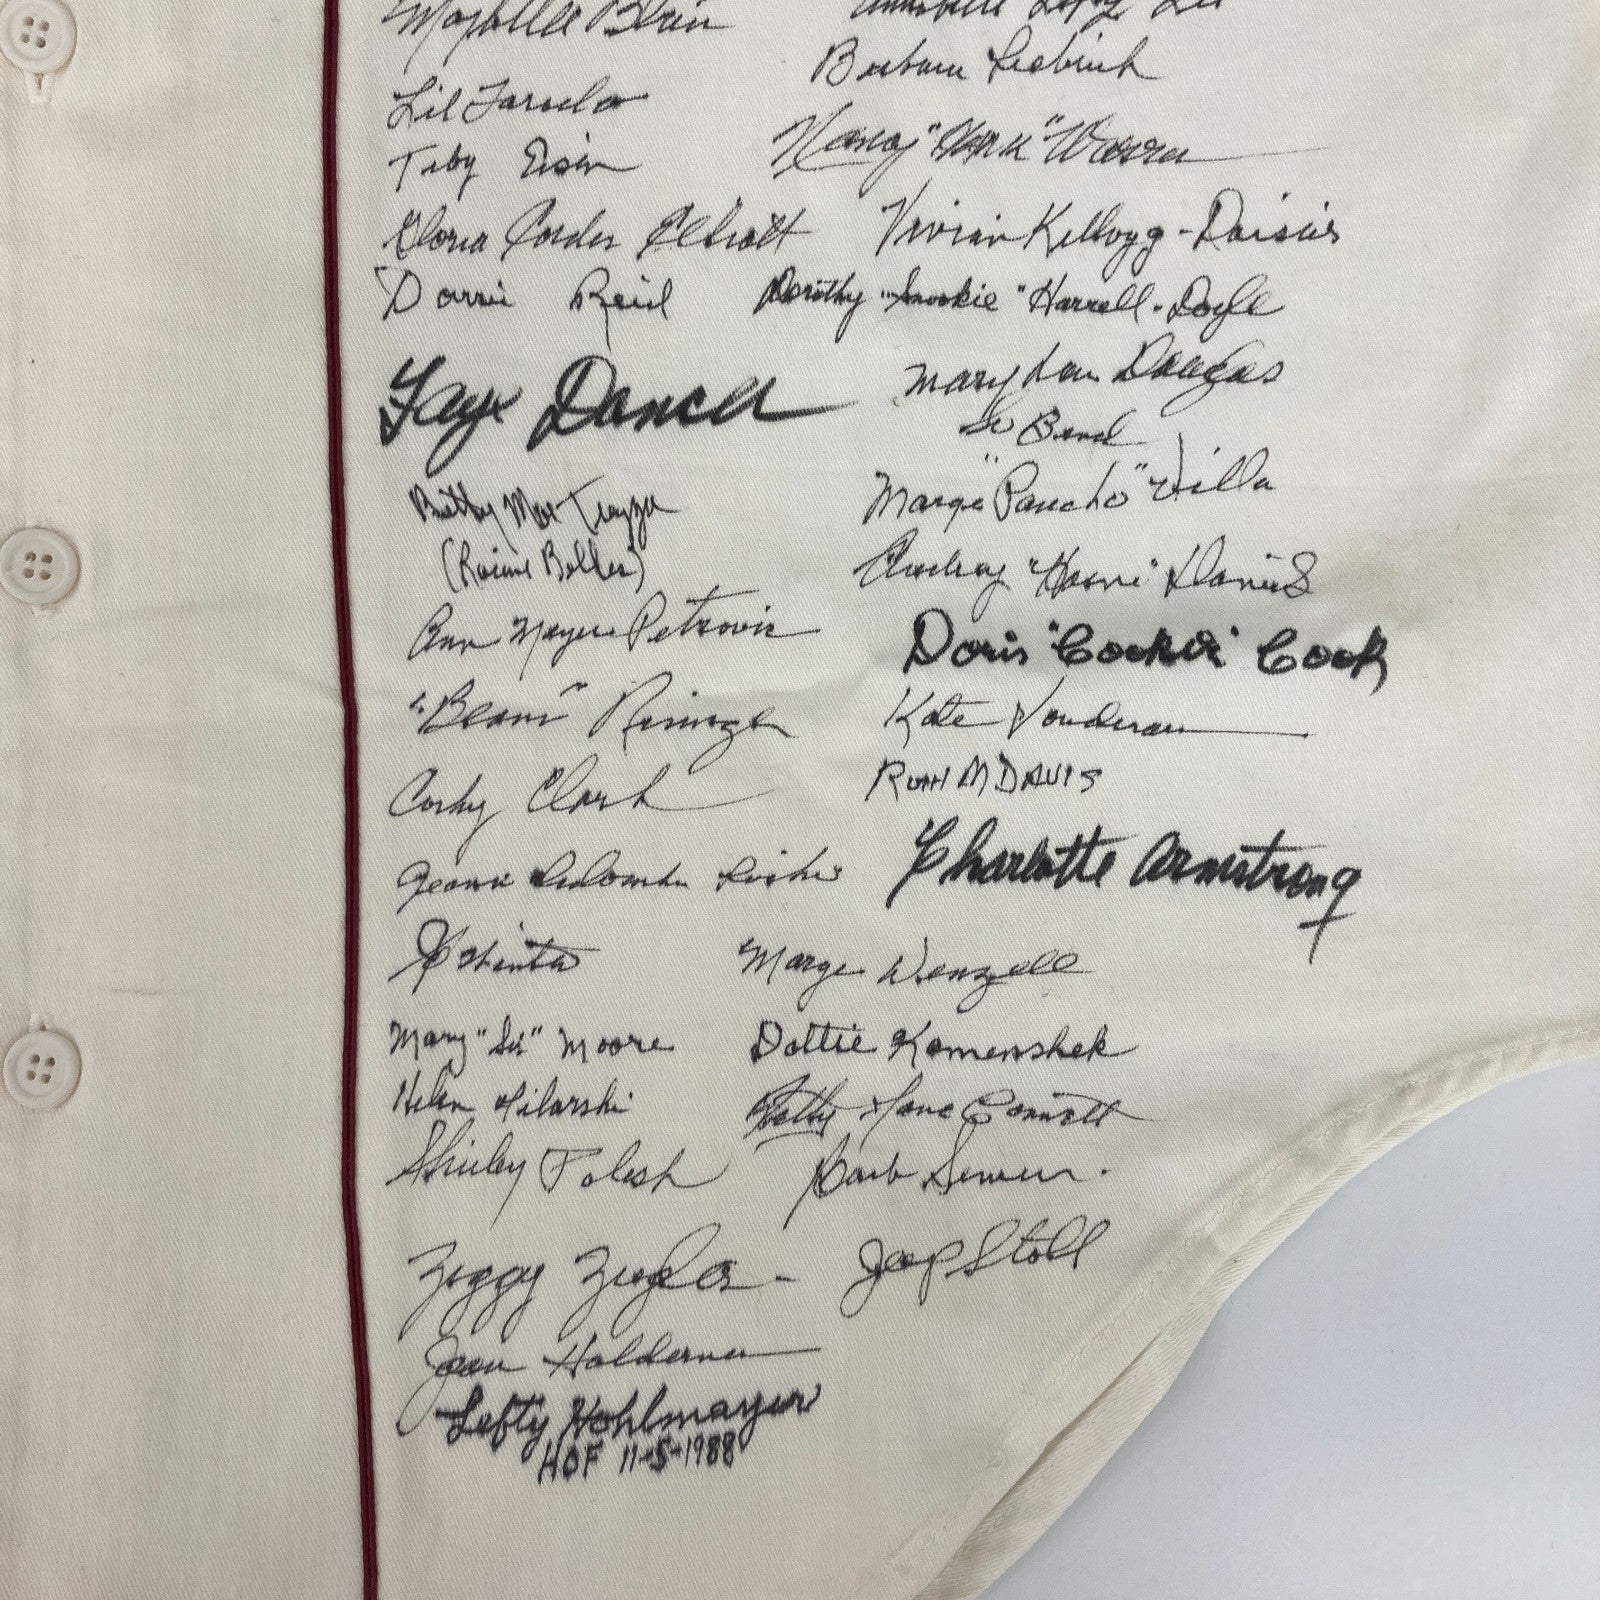 Maybelle Blair
Lil Faralla
Tiby Eisen
Gloria Cordes Elliott
Dorrie Reid
Faye Dancer
Betty Moe Trezza
(Racine Belles)
Ann Meyers Petrovic
"Beans" Risinger
Corky Clark
Jeanie DesCombes Lesko
Mary "Sis" Moore
Helen Filarski
Shirley Palesh
Ziggy Ziegler
Jean Holderness
Lefty Hohlmayer
HOF 11-5-1988
Annabelle Lopez Lee
Barbara Liebrich
Nancy "Hank" Warren
Vivian Kellogg-Daisies
Dorothy "Snookie" Harrell-Doyle
Mary Lou Douglas
So Bend
Marge "Pancho" Villa
Audrey Daniels
Doris "Cookie" Cook
Kate Vonderau
RUTH M DAVIS
Charlotte Armstrong
Marge Wenzell
Dottie Kamenshek
Betty Jane Cornett
Barb
Jeep Stoll